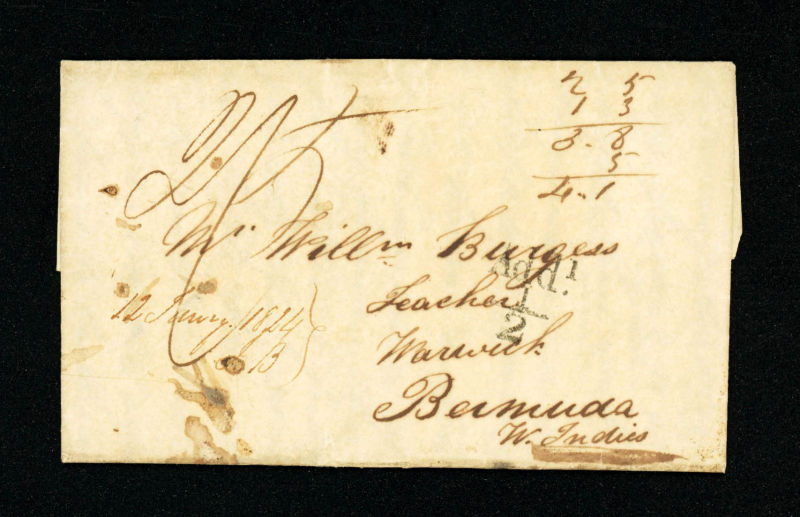 2/5
2 5
1 3
3. 8
5
4. 1
Mr. Willm Burgess
Addl
1/2
Teacher
Warwick
Bermuda
W. Indies
12 Jenuary. 1824
B